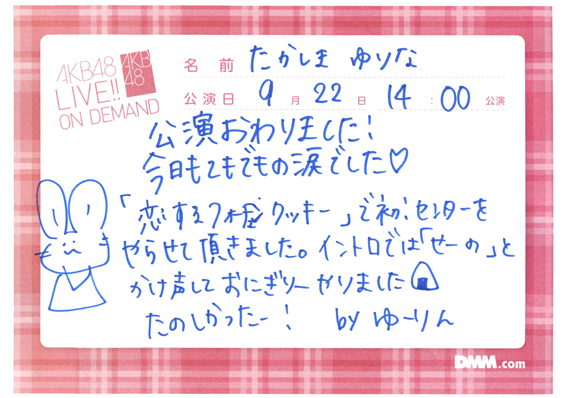 AKB48
LIVE!!
ON DEMAND
AKB
48
名前 たかしま ゆりな
公演日 9月22日 14:00公演
公演おわりました!
今日もてもでもの涙でした♡
「恋するフォーチュンクッキー」で初、センターを
やらせて頂きました。イントロでは「せーの」と
かけ声しておにぎりーやりました🍙
たのしかったー! by ゆーりん
DMM.com